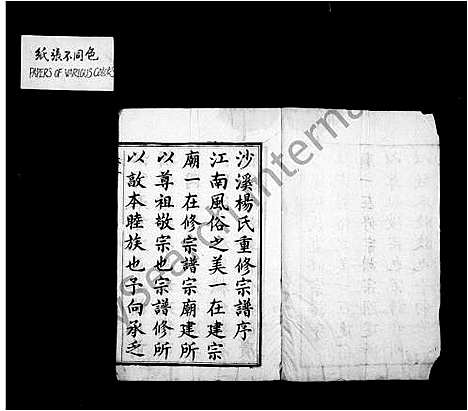 紙張不同色
PAPERS OF VARIOUS COLORS
沙溪楊氏重修宗譜序
江南風俗之美一在建宗
廟一在修宗譜宗廟建所
以尊祖敬宗也宗譜修所
以敦本睦族也予向承乏